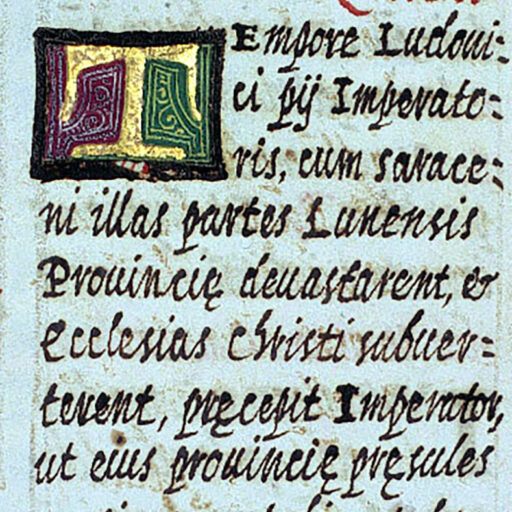 TEmpore Ludoui=
ci pij Imperato=
ris, cum sarace=
ni illas partes Lunensis
Prouincię deuastarent, et
Ecclesias christi subuer=
terent, pręcepit Imperator,
ut eius prouincię pręsules